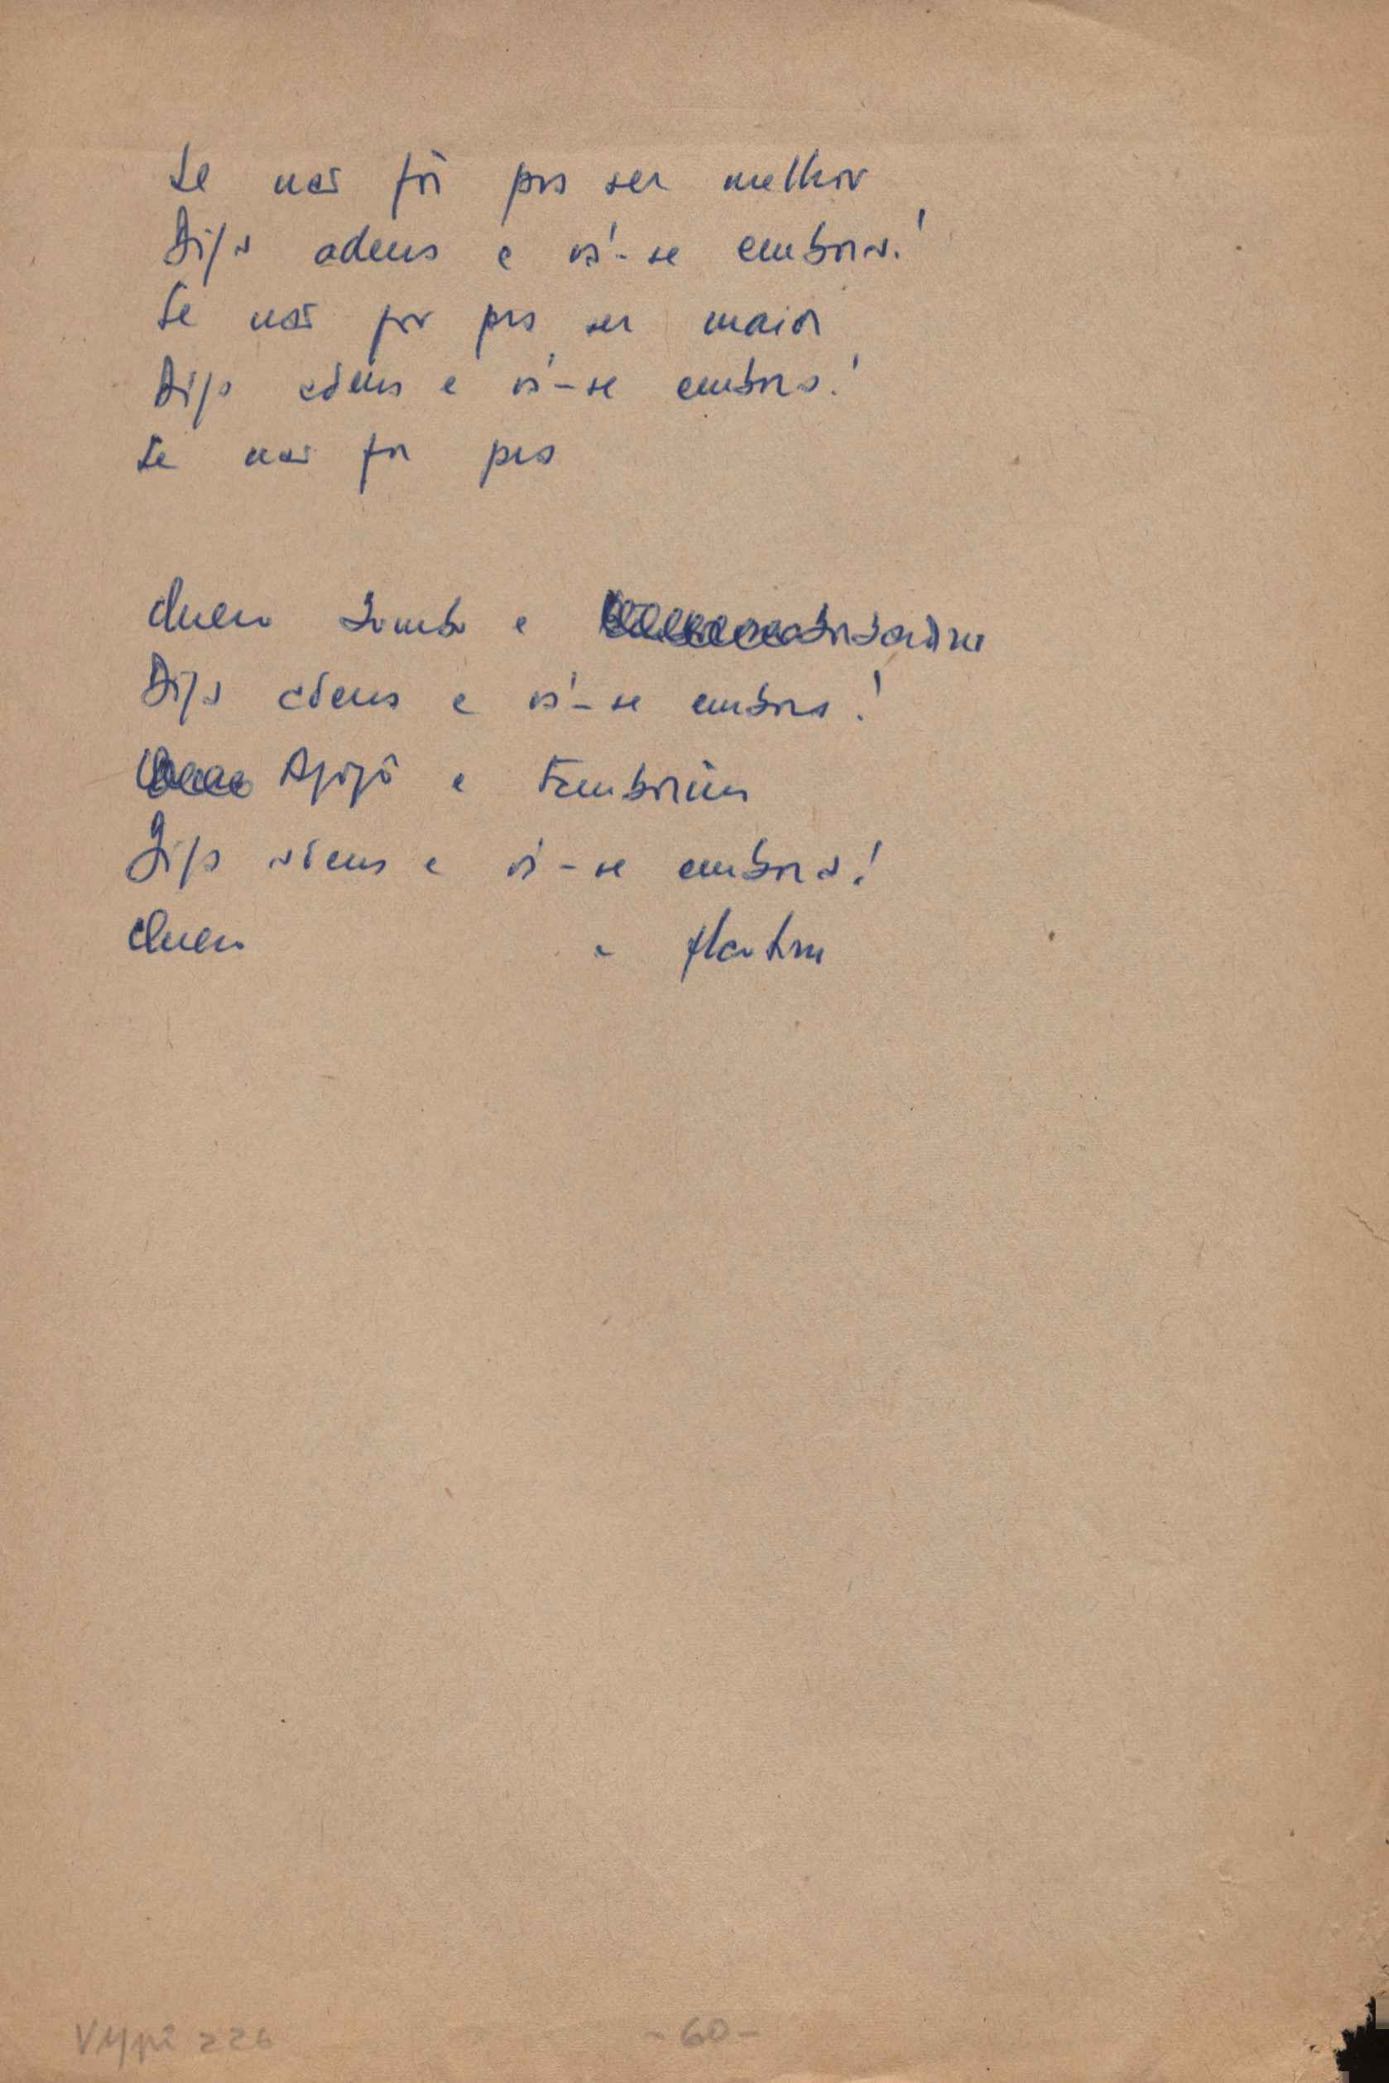 Se não fôr pra ser melhor
Diga adeus e vá-se embora!
Se não for pra ser maior
Diga adeus e vá-se embora!
Se não for pra
Quero bumbo e
Diga adeus e vá-se embora!
Agogô e tamborim
Diga adeus e vá-se embora!
Quero e flautim
VMpi 226
-60-